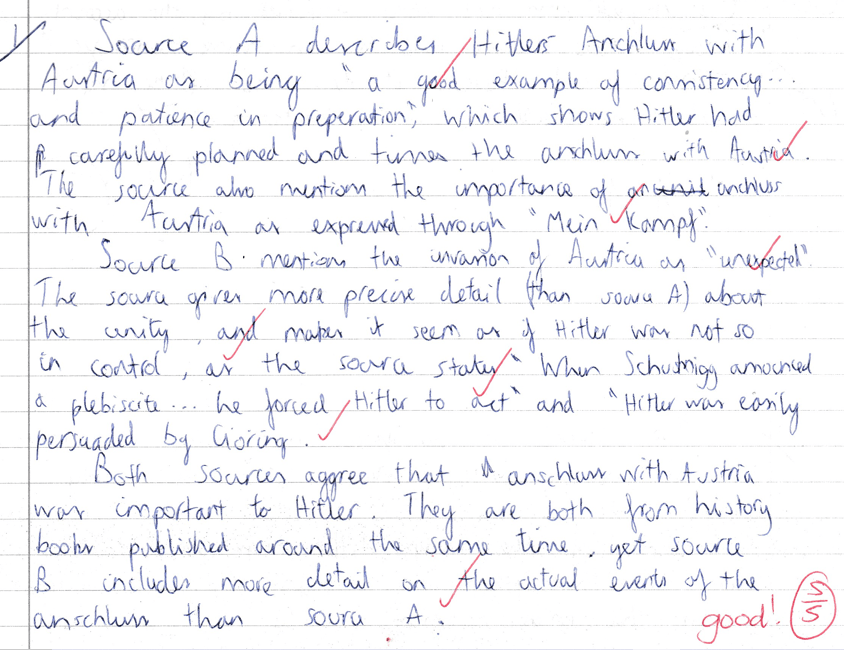 1 Source A describes Hitlers Anchluss with
Austria as being "a good example of consistency...
and patience in preperation", which shows Hitler had
carefully planned and times the anschluss with Austria.
The source also mentions the importance of anchluss
with Austria as expressed through "Mein Kampf".
Source B mentions the invasion of Austria as "unexpected"
The source gives more precise detail (than source A) about
the unity, and makes it seem as if Hitler was not so
in control, as the source states "When Schusnigg announced
a plebiscite... he forced Hitler to act" and "Hitler was easily
persuaded by Göring.
Both sources aggree that anschluss with Austria
was important to Hitler. They are both from history
books published around the same time, yet source
B includes more detail on the actual events of the
anschluss than source A.
good! 5/5